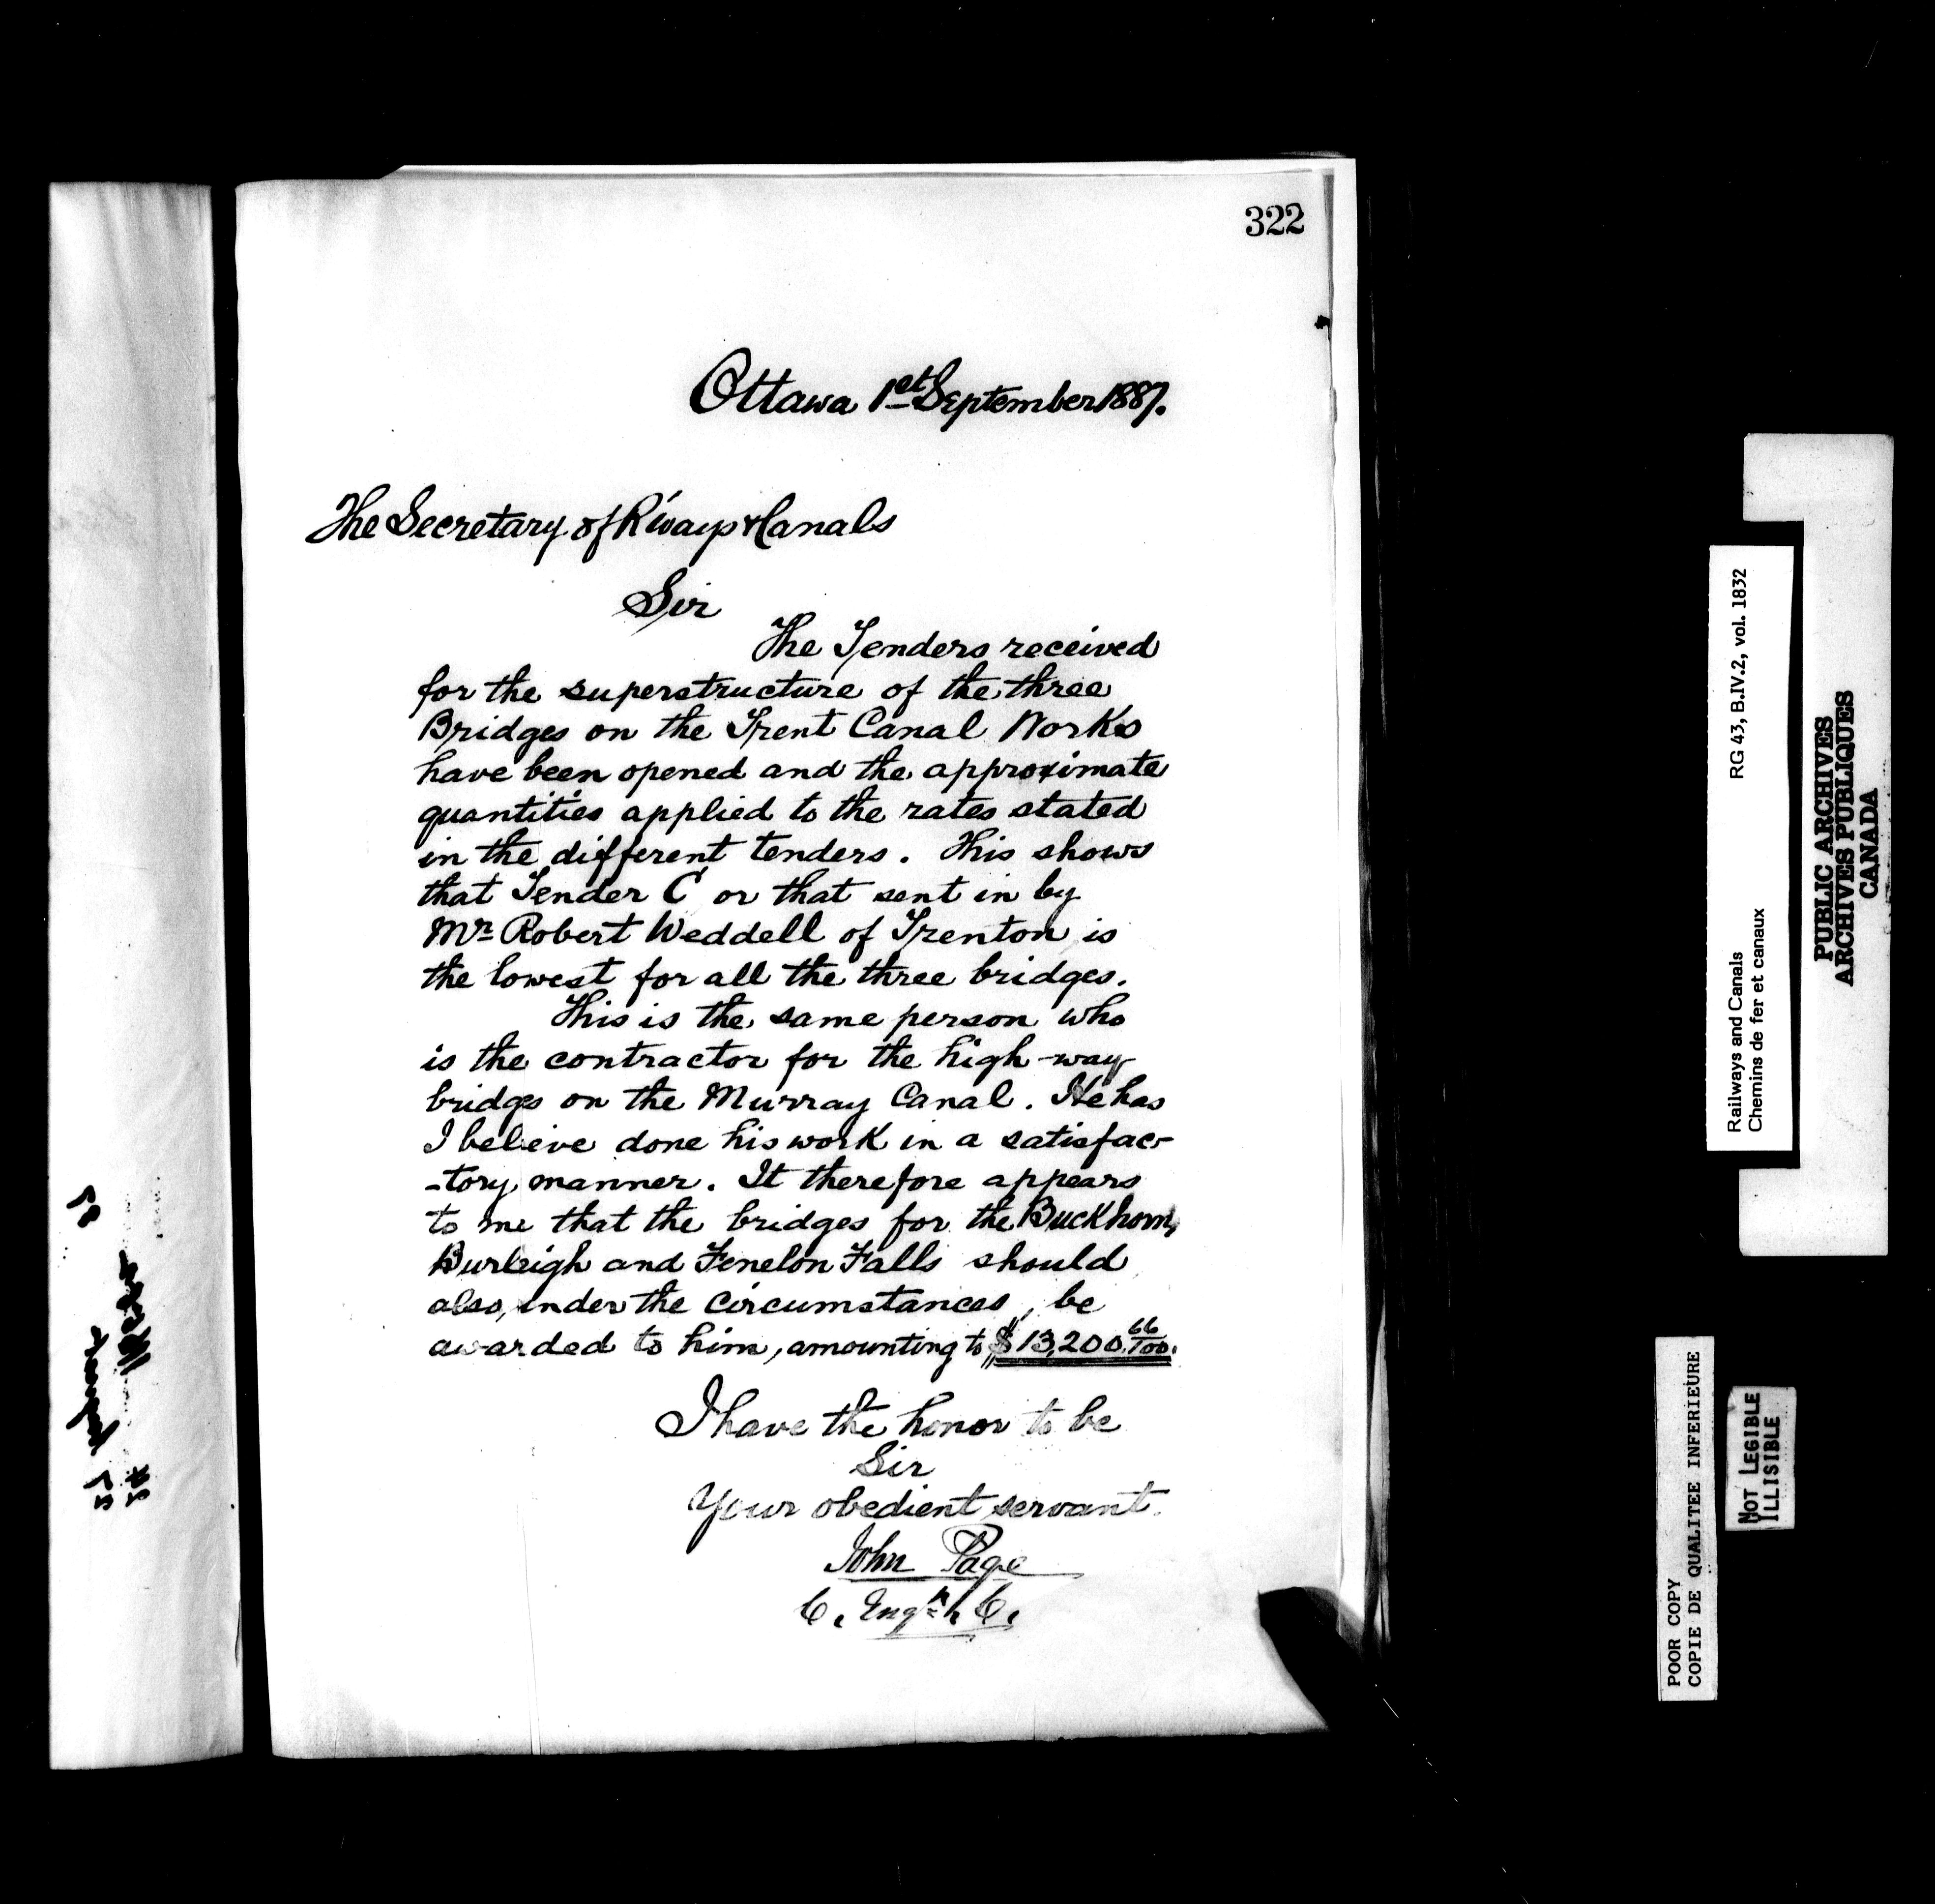 322
Ottawa 1st September 1887.
The Secretary of R'ways & Canals
Sir
The Tenders received
for the superstructure of the three
Bridges on the Trent Canal Works
have been opened and the approximate
quantities applied to the rates stated
in the different tenders. This shows
that Tender C or that sent in by
Mr Robert Weddell of Trenton is
the lowest for all the three bridges.
This is the same person who
is the contractor for the high-way
bridgs on the Murray Canal. He has
I believe done his work in a satisfac-
-tory manner. It therefore appears
to me that the bridges for the Buckhorn,
Burleigh and Fenelon Falls should
also, under the circumstances, be
awarded to him, amounting to $13,200.66/100.
I have the honor to be
Sir
Your obedient servant.
John Page
C. Engr C.
Railways and Canals RG 43, B.IV.2, vol. 1832
Chemins de fer et canaux
PUBLIC ARCHIVES
ARCHIVES PUBLIQUES
CANADA
POOR COPY
COPIE DE QUALITEE INFERIEURE
NOT LEGIBLE
ILLISIBLE